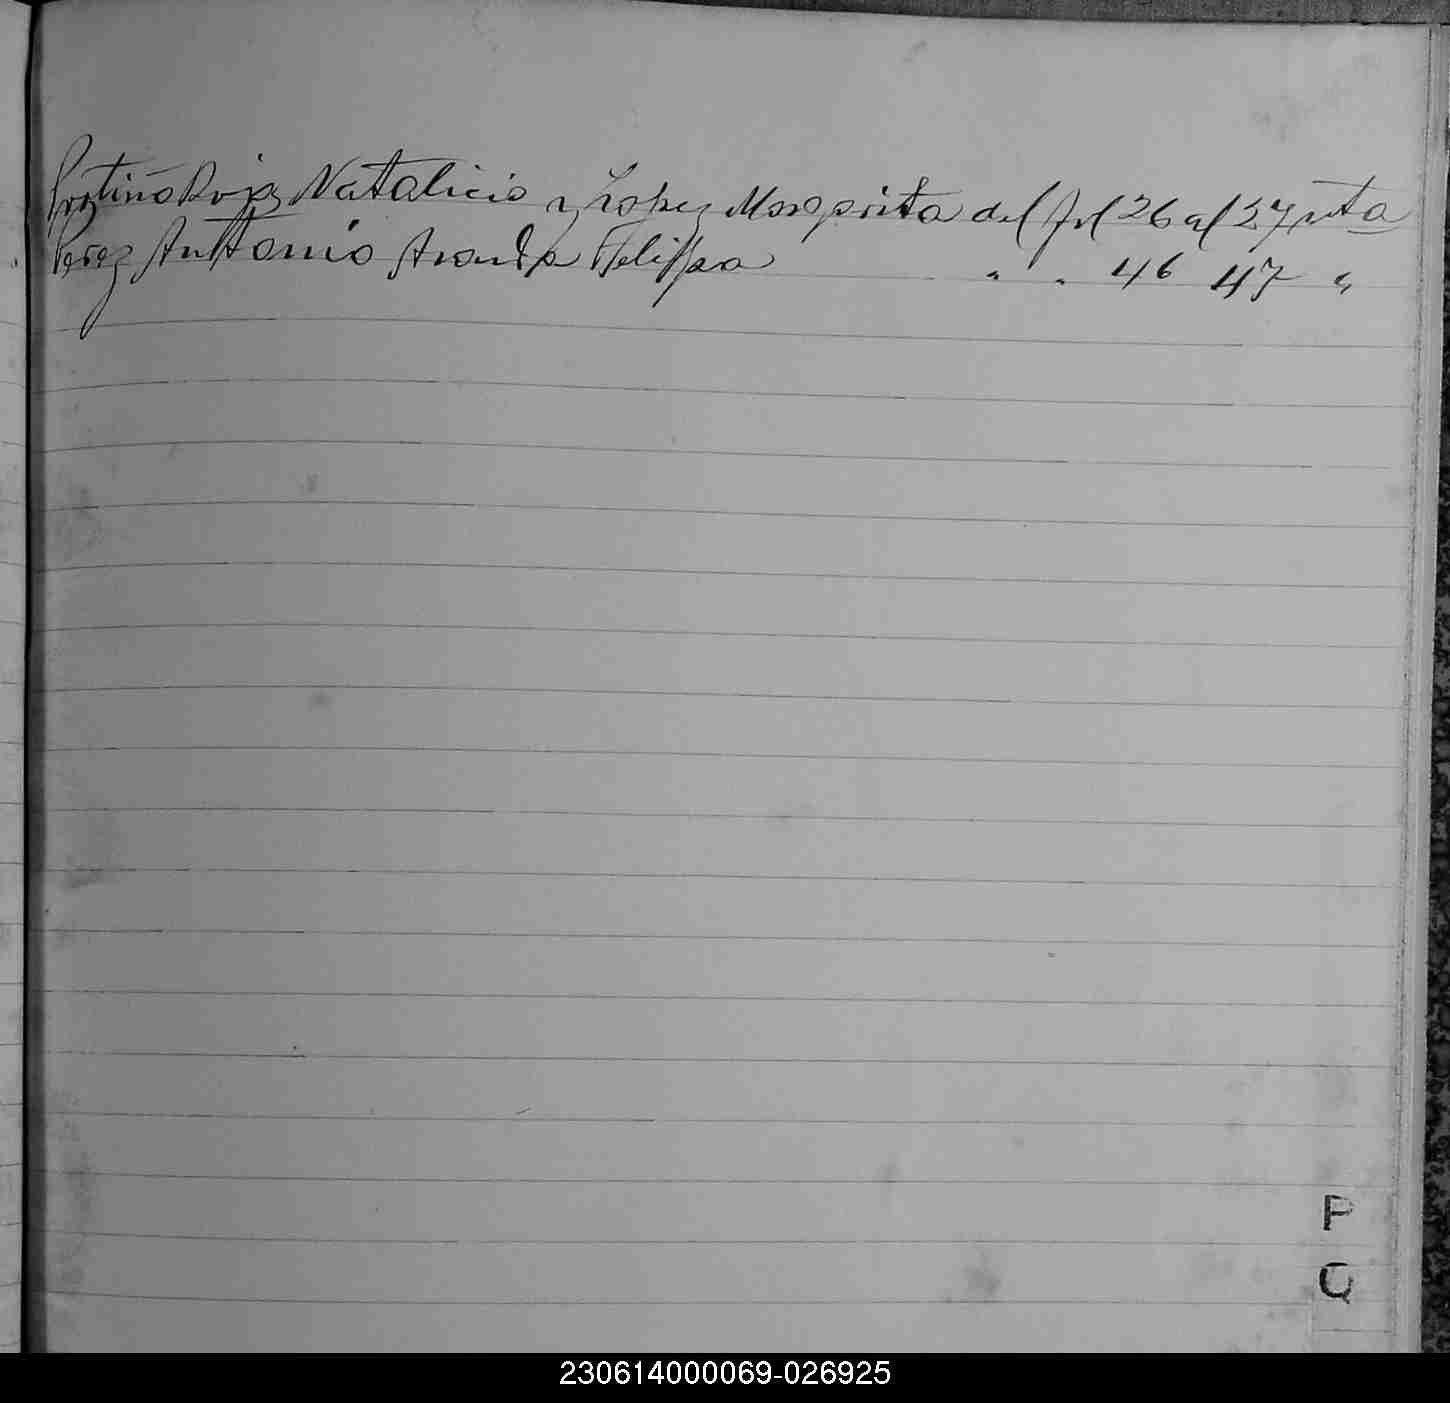 Portiño Roja Natalicio y Lopez Margarita del fol 26 al 27 vta
Perez Antonio Aranda Felippa " " 46 47 "
P
Q
230614000069-026925